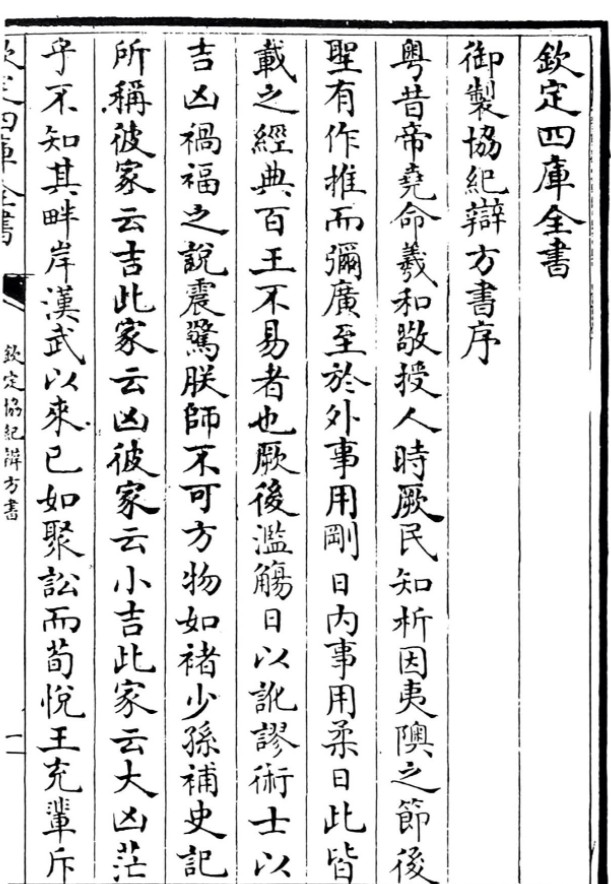 欽定四庫全書
御製協紀辯方書序
粤昔帝堯命羲和敬授人時厥民知析因夷隩之節後
聖有作推而彌廣至於外事用剛日内事用柔日此皆
載之經典百王不易者也厥後濫觴日以訛謬術士以
吉凶禍福之說震驚朕師不可方物如褚少孫補史記
所稱彼家云吉此家云凶彼家云小吉此家云大凶茫
乎不知其畔岸漢武以來已如聚訟而荀悅王充輩斥
欽定四庫全書
欽定協紀辯方書
一